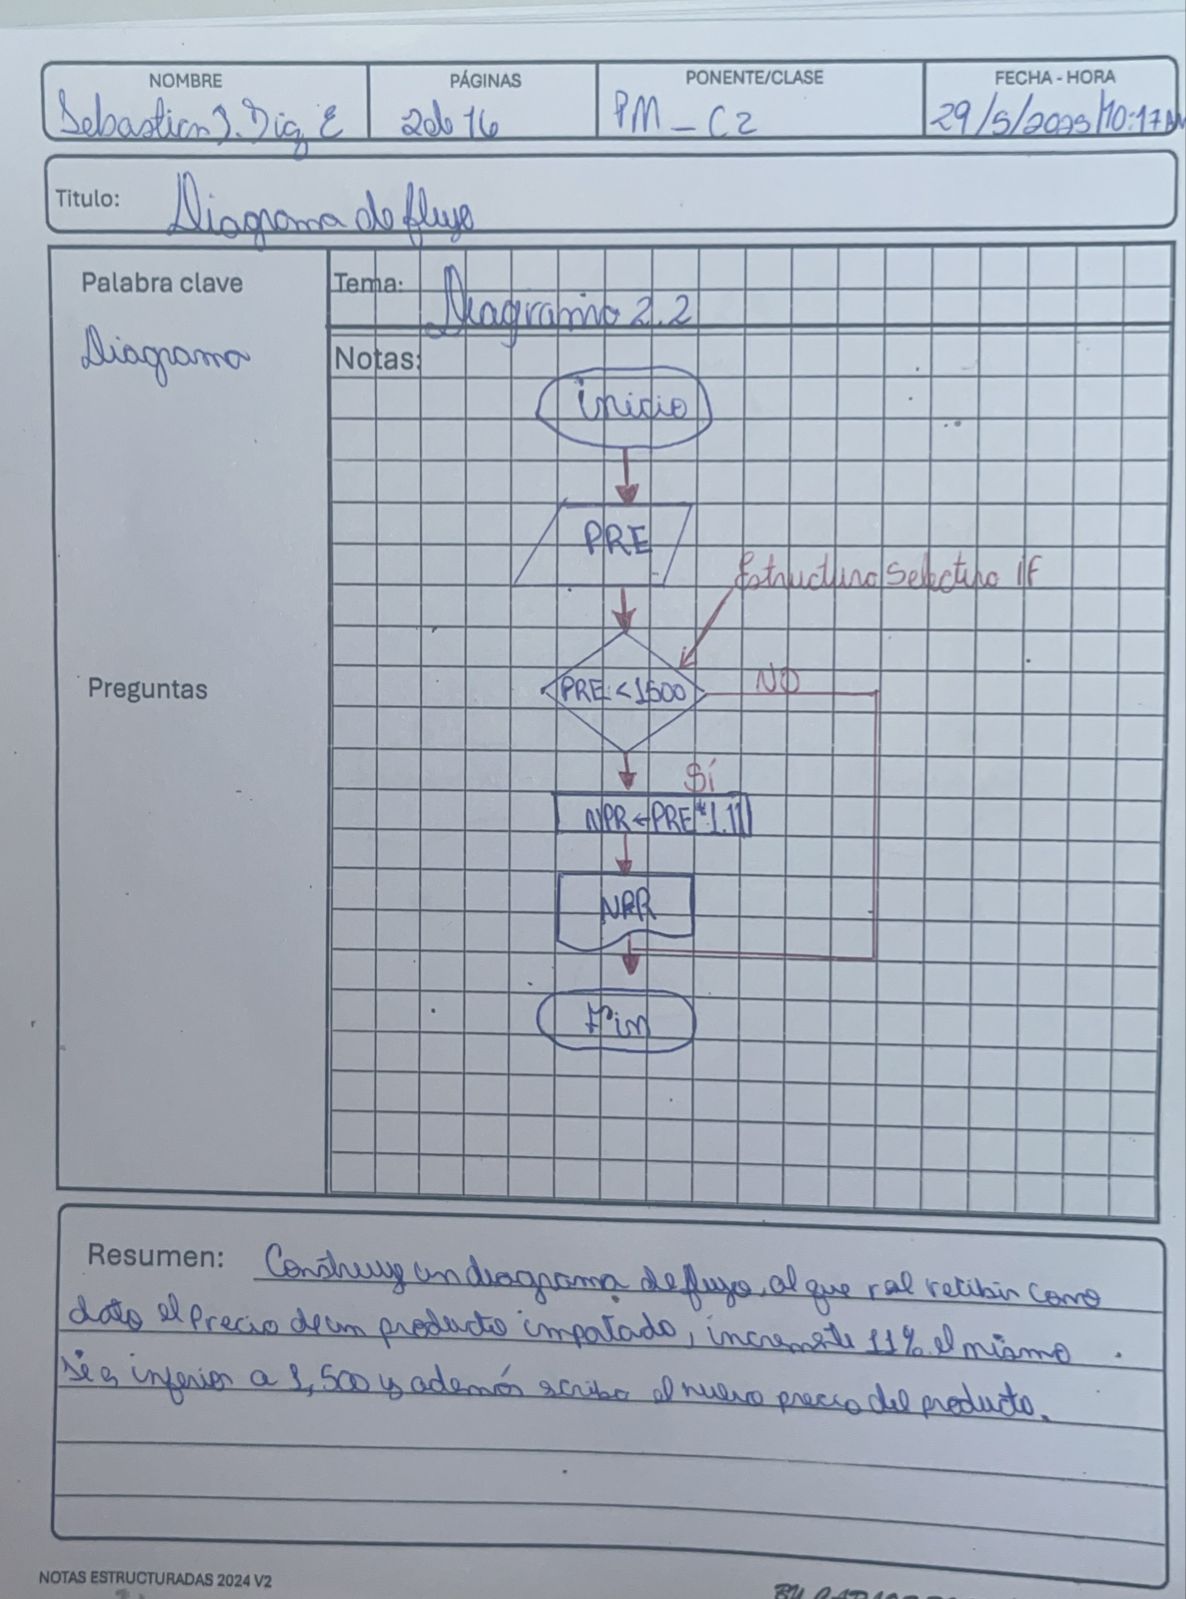 NOMBRE PÁGINAS PONENTE/CLASE FECHA - HORA
Sebastian J. E 2 de 16 PM - C2 29/5/2025 10:17
Titulo: Diagrama de flujo
Palabra clave
Diagrama
Preguntas
Tema: Diagrama 2.2
Notas:
inicio
PRE
Estructura Selectiva IF
PRE < 1500
NO
Sí
NPR ← PRE * 1.11
NPR
Fin
Resumen: Construye un diagrama de flujo, al que recibir como
dato el Precio de un producto, incremente 11% el mismo
si es inferior a 1,500 y además scriba el nuevo precio del producto.
NOTAS ESTRUCTURADAS 2024 V2
BY